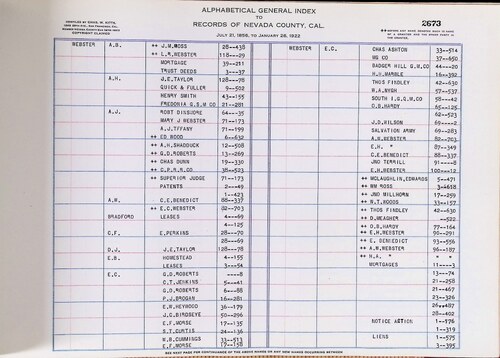 ALPHABETICAL GENERAL INDEX
TO
RECORDS OF NEVADA COUNTY, CAL.
2673
COPYRIGHT CLAIMED
WEBSTER A.B. ++ J.M.MOSS 28--438
++ L.R.WEBSTER 118---29
MORTGAGE 39--211
TRUST DEEDS 3--37
A.H. J.E.TAYLOR 128---78
QUICK & FULLER 9--502
HENRY SMITH 43--155
FREDONIA G.S.M CO 21--281
A.J. MOST DINSMORE 64---35
MARY J WEBSTER 71--173
A.J.TFFANY 71--199
++ ED WOOD 6--632
++ A.H.SHADUCK 12--508
++ G.D.ROBERTS 13--269
++ CHAS DUNN 19--330
++ C.P.R.R CO 38--523
++ SUPERIOR JUDGE 71--173
PATENTS 2---49
1--423
A.W. C.E.BENEDICT 88--337
++ E.C.WEBSTER 82--703
BRADFORD LEASES 4---69
4--125
C.F. E.PERKINS 28---70
28---69
D.J. J.E.TAYLOR 128---78
E.B. HOMESTEAD 4--155
LEASES 3---54
E.C. G.D.ROBERTS ----8
C.T.JENKINS 5---41
G.D.ROBERTS 6---88
P.J.BROGAN 16--281
E.W.HEYWOOD 36--179
J.C.BIRDSEYE 50--296
E.F.MORSE 17--135
B.T.CURTIS 24--136
W.B.CUMMINGS 93--513
E.F.MORSE 17--158
WEBSTER E.C. CHAS ASHTON 33--514
NG CO 37--650
BADGER HILL G.M.CO 44---20
H.H.MARBLE 16--392
THOS FINDLEY 42--630
W.A.NYGH 57--537
SOUTH I.G.G.M CO 58---42
O.D.HARDY 65--125
62--523
J.D.WILSON 69---2
SALVATION ARMY 69--283
A.W.WEBSTER 82--703
E.H. " 87--349
C.E.BENEDICT 88--337
JNO TERRILL 91----8
E.H.WEBSTER 100---12
++ MCLAUGHLIN,EDWARDS 5--471
++ WM ROSS 3--618
++ JNO MILLHORN 17--299
++ N.T.WOODS 33--157
++ THOS FINDLEY 42--630
++ D.MEAGHER --522
++ O.D.HARDY 77--164
++ E.H.WEBSTER 90--291
++ E. BENEDICT 93--556
++ A.W.WEBSTER 96--187
++ H.A. " " "
MORTGAGES 11----3
13---74
21--258
21--467
23--326
26--487
28--402
NOTICE ACTION 1--576
1--319
LIENS 1--575
3--395
SEE NEXT PAGE FOR CONTINUANCE OF THE ABOVE NAMES OR ANY NEW NAMES OCCURRING BETWEEN